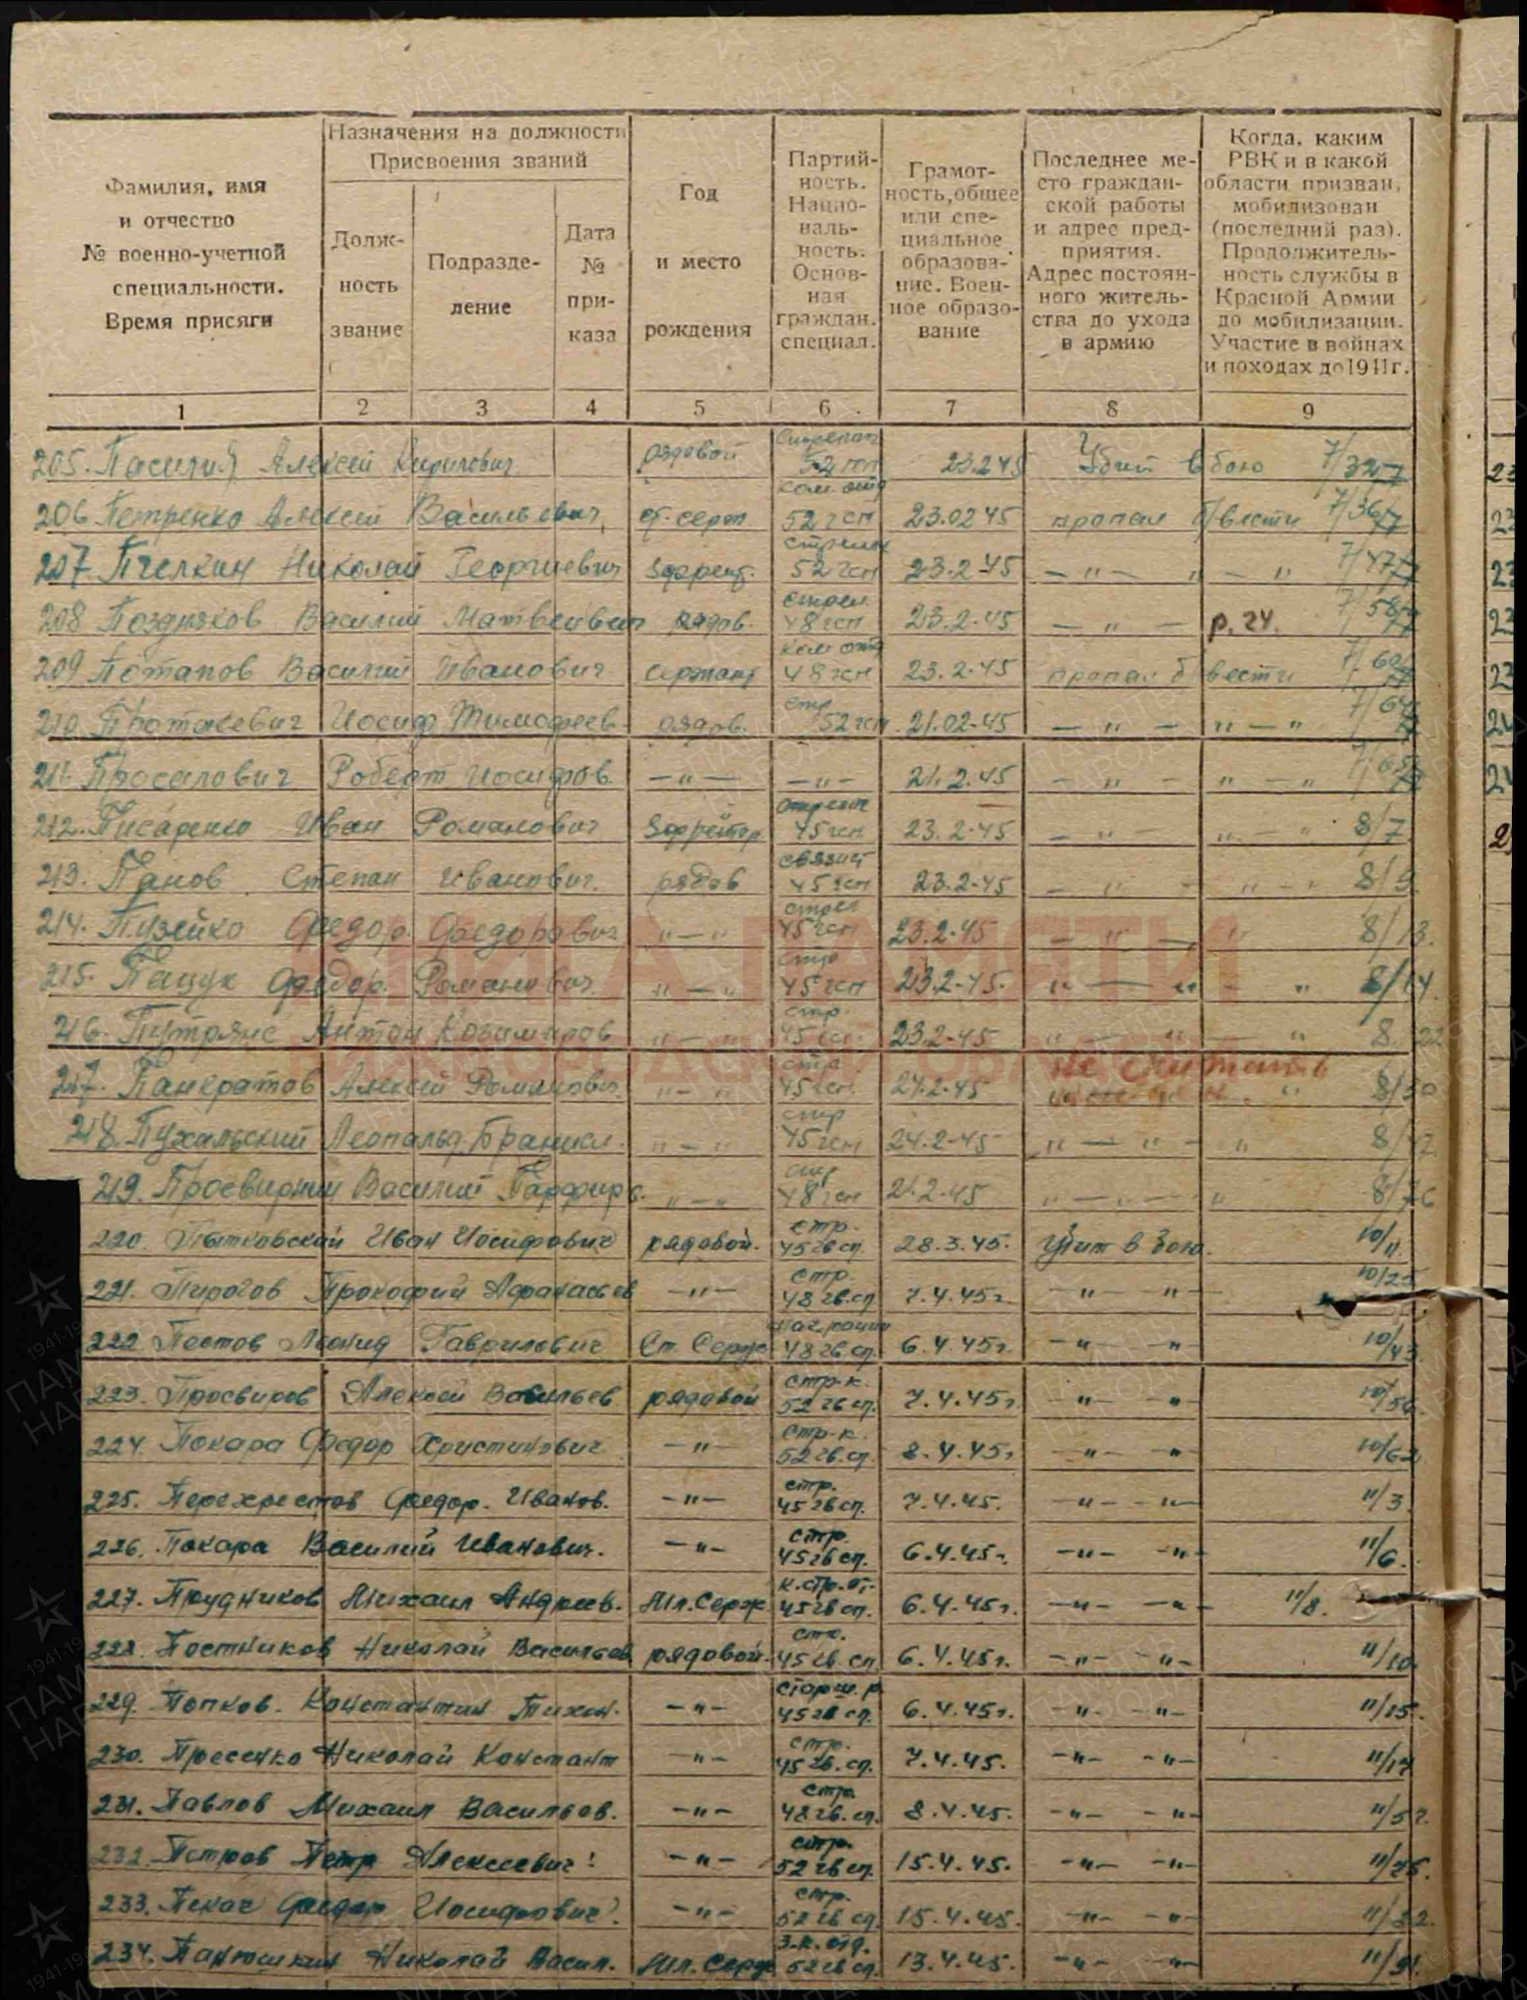 Фамилия, имя
и отчество
№ военно-учетной
специальности.
Время присяги
Назначения на должности
Присвоения званий
Долж-
ность
звание
Подразде-
ление
Дата
№
при-
каза
Год
и место
рождения
Партий-
ность.
Нацио-
наль-
ность.
Основ-
ная
граждан.
специал.
Грамот-
ность, общее
или спе-
циальное
образова-
ние. Воен-
ное образо-
вание
Последнее ме-
сто граждан-
ской работы
и адрес пред-
приятия.
Адрес постоян-
ного житель-
ства до ухода
в армию
Когда, каким
РВК и в какой
области призван,
мобилизован
(последний раз).
Продолжитель-
ность службы в
Красной Армии
до мобилизации.
Участие в войнах
и походах до 1941 г.
1 2 3 4 5 6 7 8 9
205. Алексей Кирилович рядовой 23.2.45 Убит в бою
206 Петренко Алексей Васильевич ком. отд 52 гсп 23.02.45 пропал б/вести
207 Пчелкин Николай Георгиевич стрелок 52 гсп 23.2-45 — " — " — "
208 Поздняков Василий Матвеевич рядов. 48 гсп 23.2-45 — " — р. 24.
209 Потапов Василий Иванович сержант ком отд 48 гсп 23.2-45 пропал б вести
210. Иосиф Тимофеев. рядов. стр 52 гсп 21.02.45 — " — " — "
211. Роберт Иосифов. — " — — " — 21.2.45 — " — " — "
212. Писаренко Иван Романович Ефрейтор 45 гсп 23.2-45 — " " — " 8/7
213. Панов Степан Иванович. рядов связист 45 гсп 23.2-45 — " — " — " 8/9
214. Пузейко Федор. Федорович " — " стрел 45 гсп 23.2-45 — " — " 8/13.
215. Пацук Федор. Романович. " — " стр 45 гсп 23.2-45. " — " — " 8/14
216. Антон Козимиров " — " стр. 45 гсп 23.2-45 " — " " 8 22
217. Панкратов Алексей Романович " — " стр 45 гсп. 24.2-45 не считать " 8/30
218. Пухальский Леопольд. Бранисл. " — " стр 45 гсп 24.2-45 " — " " 8/47
219. Просвирнин Василий " — " стр 48 гсп 21.2-45 " — " " 8/76
220. Пытковский Иван Иосифович рядовой. стр. 45 гв сп. 28.3.45. Убит в бою. 10/11.
221. Пирогов Прокофий Афанасьев — " — стр. 48 гв.сп 7.4.45г. — " — " — 10/25
222. Пестов Леонид Гаврилович Ст. Серж 48 гв.сп. 6.4.45г. — " — " 10/43.
223. Просвиров Алексей Васильев. рядовой стр-к. 52 гв сп. 7.4.45г — " — " 10/56.
224. Покара Федор Христинович — " — стр-к. 52 гв.сп. 8.4.45г — " — " 10/62
225. Перехрестов Федор. Иванов. — " — стр. 45 гв сп. 7.4.45. — " — " — 11/3.
226. Покара Василий Иванович. — " — стр. 45 гв сп. 6.4.45г. — " — — " — 11/6.
227. Прудников Михаил Андреев. Мл. Серж. к. стр. от. 45 гв сп. 6.4.45г. — " — — " — 11/8.
228. Постников Николай Васильев рядовой. 45 гв. сп 6.4.45г. — " — — " — 11/10.
229. Попков. Константин Тихон. — " — 45 гв сп. 6.4.45г. — " — — " — 11/15.
230. Просенко Николай Констант — " — стр. 45 гв. сп. 7.4.45. — " — — " — 11/17
231. Павлов Михаил Васильев. — " — стр. 48 гв. сп. 8.4.45. — " — — " —
232. Петров Петр Алексеевич. — " — стр. 52 гв сп. 15.4.45. — " — — " —
233. Пекач Федор Иосифович. — " — стр. 52 гв сп. 15.4.45. — " — — " —
234. Пантюшкин Николай Васил. Мл. Серж з.к. отд. 52 гв сп. 13.4.45. — " — — " —
КНИГА ПАМЯТИ
НИЖЕГОРОДСКОЙ ОБЛАСТИ